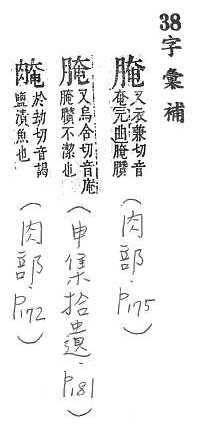 38字彙補
腌
又衣兼切音
奄元曲腌臢
(肉部.P.175)
腌
又烏合切音庵
腌臢不潔也
(申集拾遺.P.181)
於劫切音謁
鹽漬魚也
(肉部.P.172)